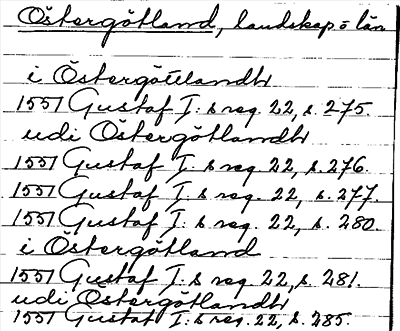 Östergötland, landskap o län
i Östergöttlandh
1551 Gustaf I:s reg. 22, s. 275.
udi Östergötlandh
1551 Gustaf I:s reg. 22, s. 276.
1551 Gustaf I:s reg. 22, s. 277.
1551 Gustaf I:s reg. 22, s. 280.
i Östergötland
1551 Gustaf I:s reg. 22, s. 281.
udi Östergötlandh
1551 Gustaf I:s reg. 22, s. 285.